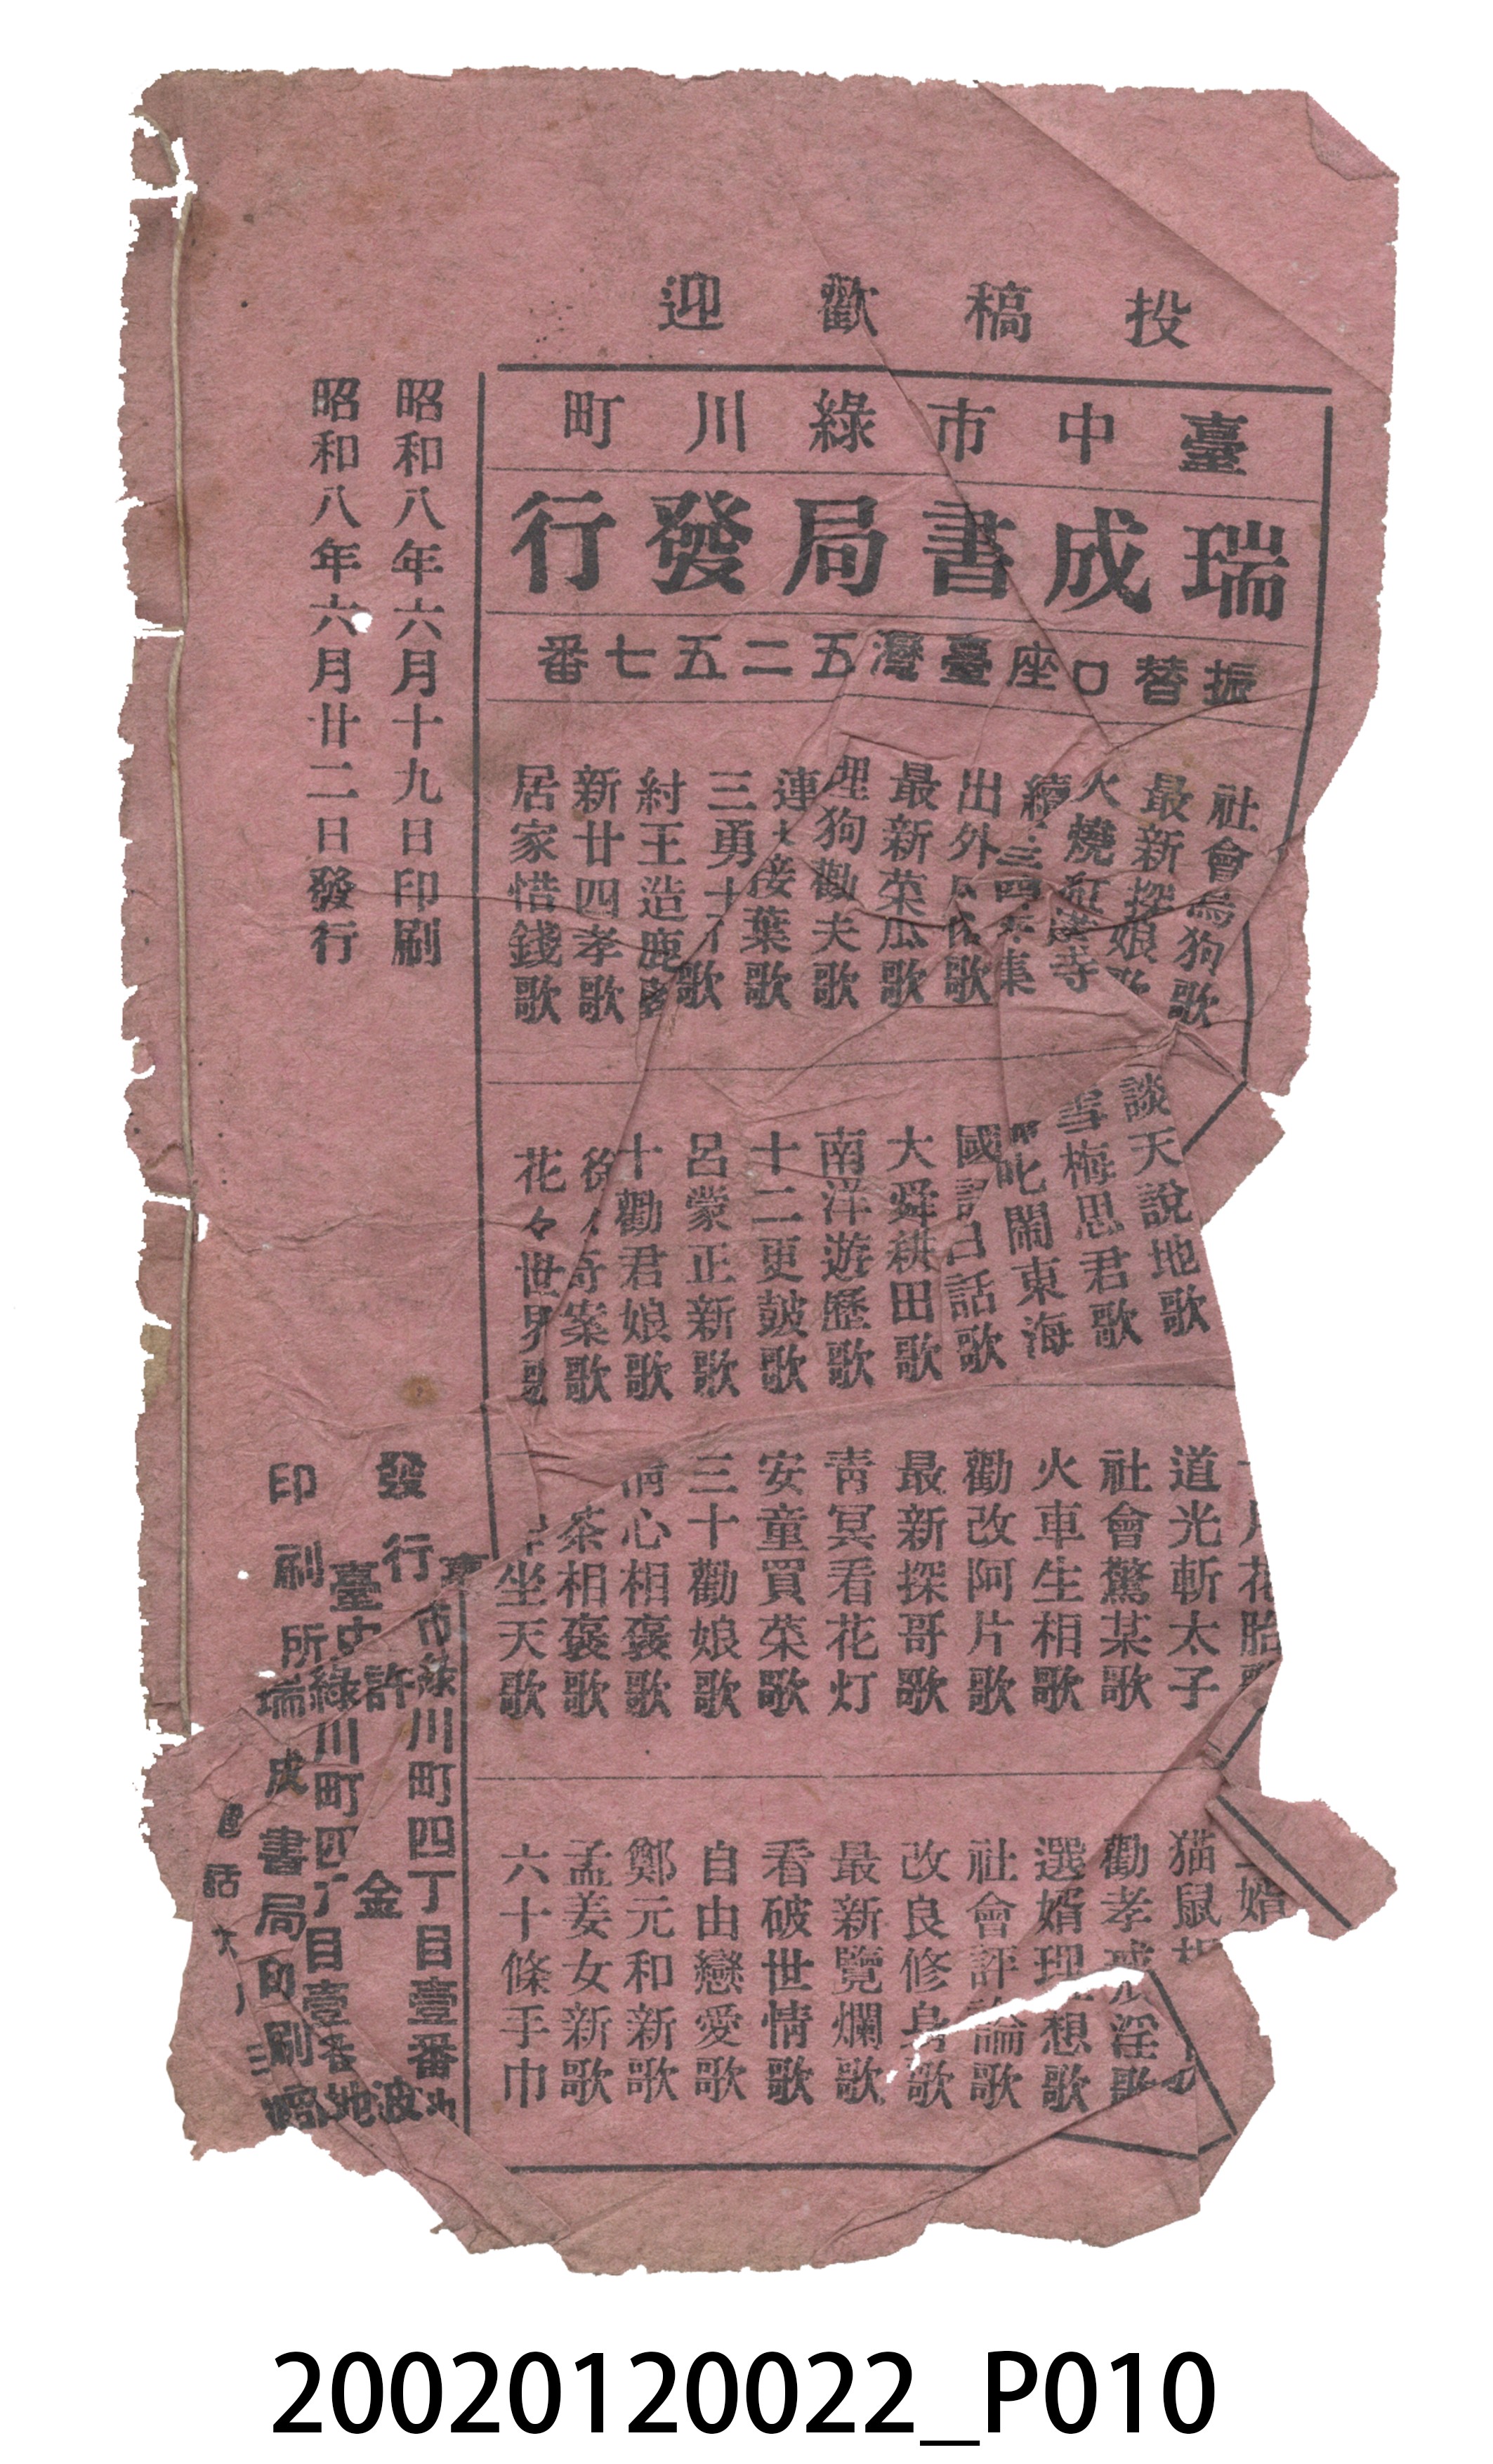 投稿歡迎
臺中市綠川町
瑞成書局發行
振替口座臺灣五二五七番
社會烏狗歌
最新探娘歌
火燒紅蓮寺
續 四集
出外 歌
最新菜瓜歌
狗勸夫歌
連 接葉歌
三勇士 歌
紂王造鹿臺
新廿四孝歌
居家惜錢歌
談天說地歌
雪梅思君歌
哪吒鬧東海
國語白話歌
大舜耕田歌
南洋遊歷歌
十二更鼓歌
呂蒙正新歌
十勸君娘歌
奇案歌
花々世界歌
月花胎歌
道光斬太子
社會驚某歌
火車生相歌
勸改阿片歌
最新探哥歌
靑冥看花灯
安童買菜歌
三十勸娘歌
心相褒歌
茶相褒歌
坐天歌
婿
猫鼠相
勸孝戒淫歌
選婿理想歌
社會評論歌
改良修身歌
最新覽爛歌
看破世情歌
自由戀愛歌
鄭元和新歌
孟姜女新歌
六十條手巾
昭和八年六月十九日印刷
昭和八年六月廿二日發行
市綠川町四丁目壹番地
發行 許金波
臺中 綠川町四丁目壹番地
印刷所 瑞成書局印刷部
電話
20020120022_P010